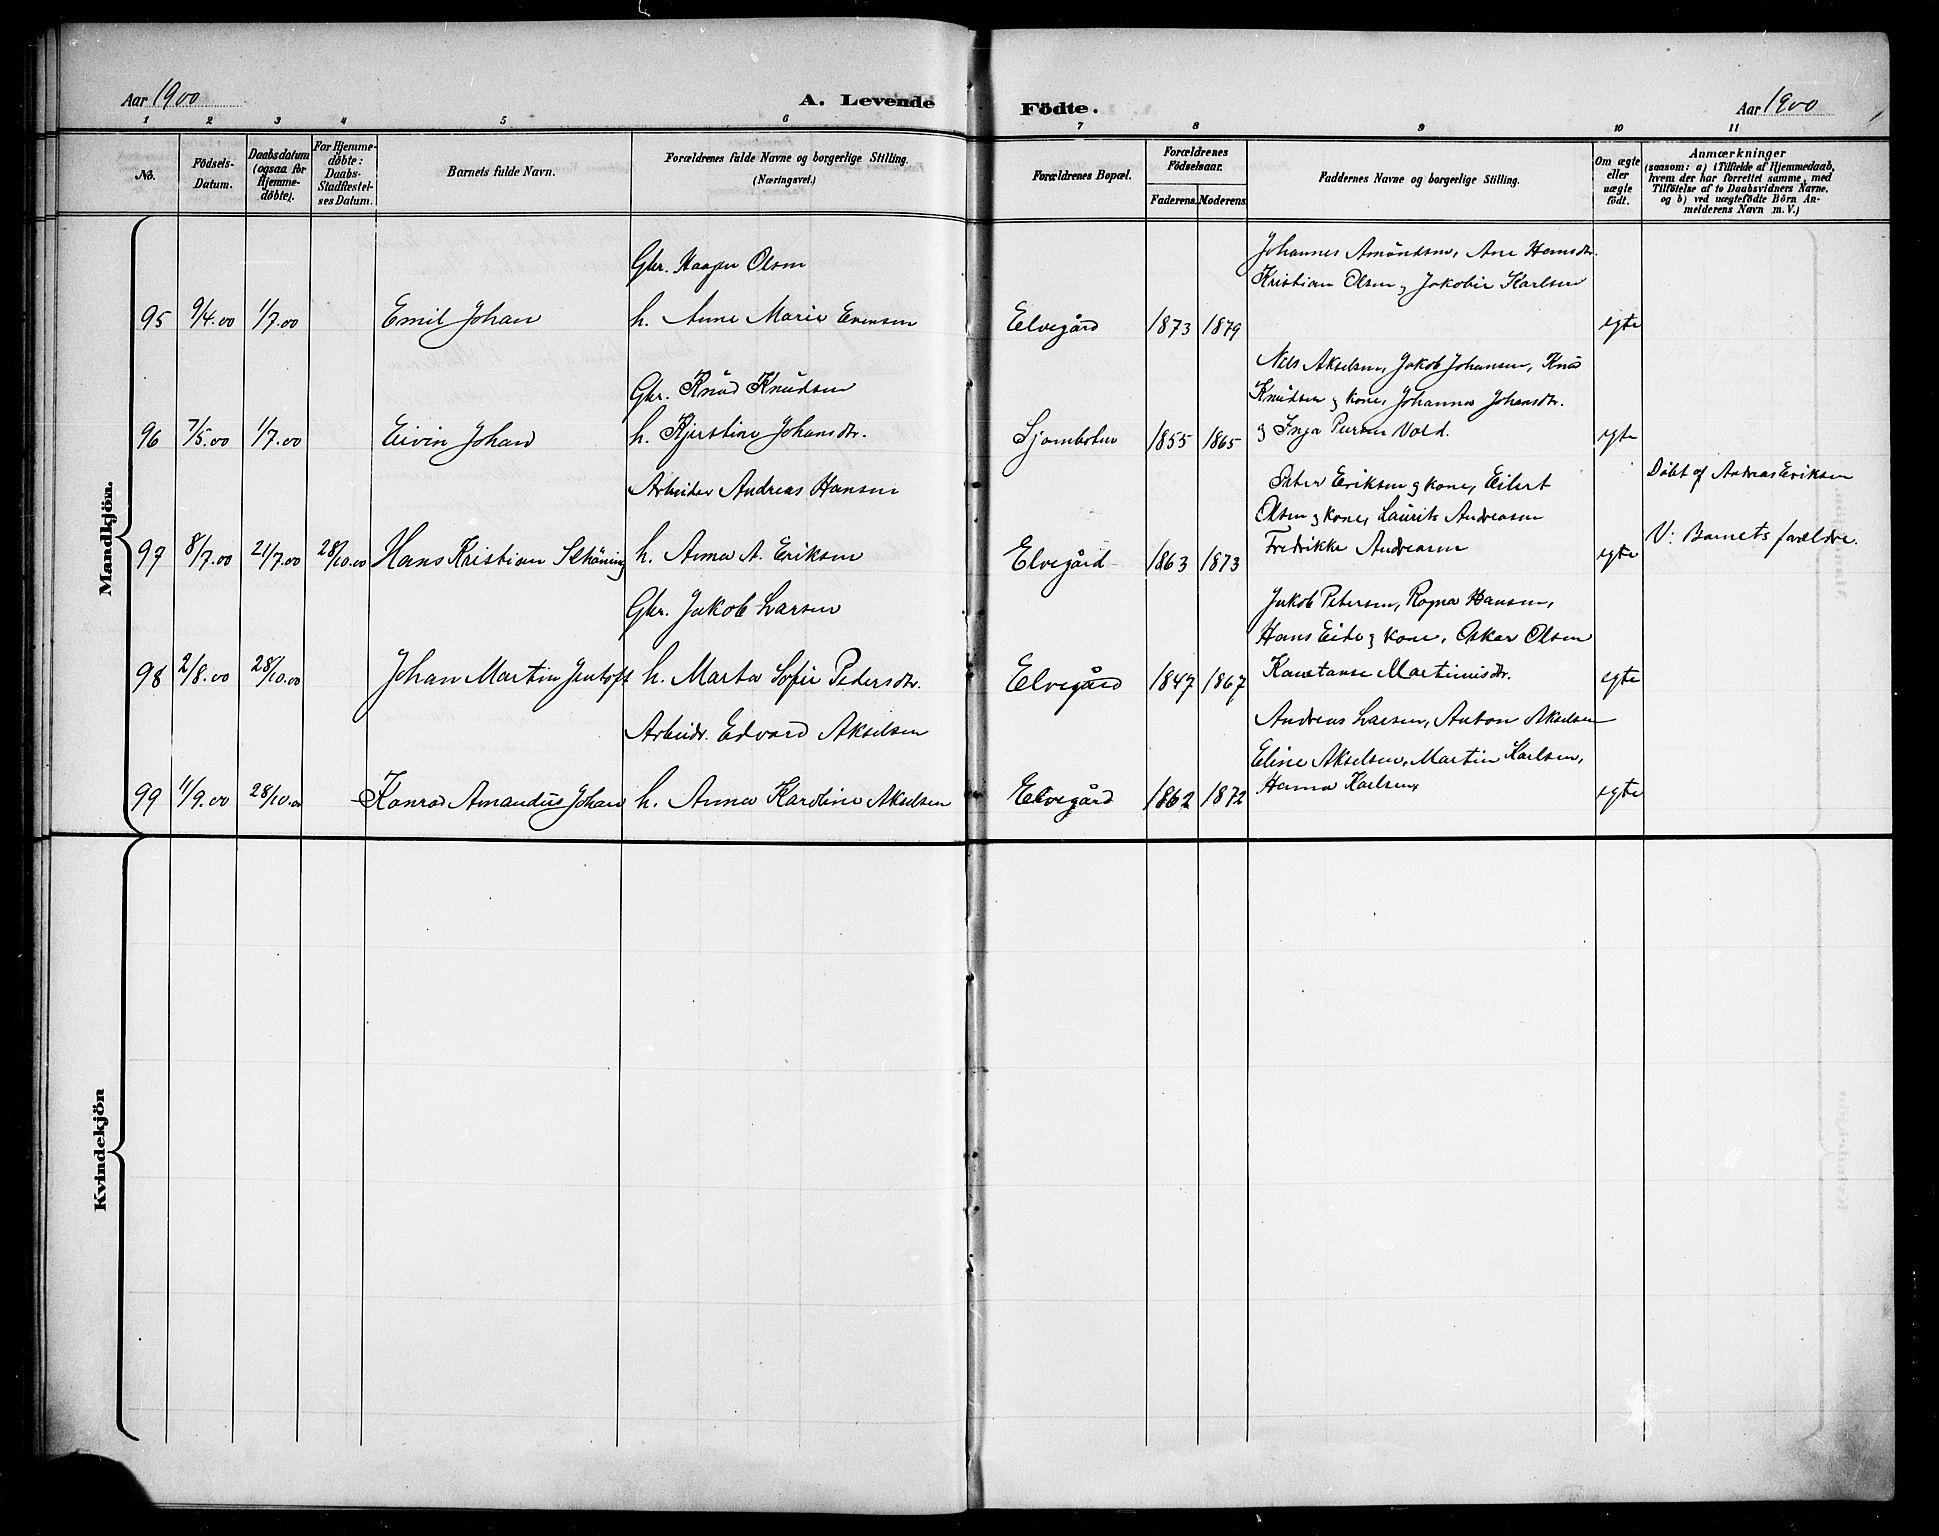 Aar 1900
A. Levende
Födte.
Aar 1900
1 2 3 4 5 6 7 8 9 10 11
No.
Födsels-
Datum.
Daabsdatum
(ogsaa for
Hjemme-
døbte).
For Hjemme-
døbte:
Daabs-
Stadfæstel-
ses Datum.
Barnets fulde Navn.
Forældrenes fulde Navne og borgerlige Stilling.
(Næringsvei.)
Forældrenes Bopæl.
Forældrenes
Födselsaar.
Faderens. Moderens.
Faddernes Navne og borgerlige Stilling.
Om ægte
eller
uægte
födt.
Anmærkninger
(saasom: a) i Tilfælde af Hjemmedaab,
hvem der har forrettet samme, med
Tilföielse af to Daabsvidners Navne,
og b) ved uægtefödte Börn An-
melderens Navn m. V.)
Mandkjön.
Gbr. Haagen Olsen
Johannes Amundsen, Ane Hansdtr.
Kristian Olsen og Jakobie Karlsen
95 9/4.00 1/7.00 Emil Johan h. Anne Marie Evensen Elvegård 1873 1879 egte
Gbr. Knud Knudsen
Nils Akselsen, Jakob Johansen, Knud
Knudsen og kone, Johanna Johansdtr.
96 7/5.00 1/7.00 Eivin Johan h. Kjerstine Johansdtr. 1855 1865 og Inga Vold. egte
Arbeider Andreas Hansen
Peter Eriksen og kone, Eilert
Olsen og kone, Laurits Andreasen
Døbt af Andreas Eriksen
97 8/7.00 21/7.00 28/10.00 Hans Kristian Schöning h. Anna A. Eriksen Elvegård 1863 1873 Fredrikke Andreasen egte V: Barnets forældre.
Gbr. Jakob Larsen
Jakob Petersen, Ragna Hansen,
Hans Eide og kone, Oskar Olsen
98 2/8.00 28/10.00 Johan Martin Jentoft h. Marta Sofie Pedersdtr. Elvegård 1847 1867 Konstanse Martinusdtr. egte
Arbeidr. Edvard Akselsen
Andreas Larsen, Anton Akselsen
Eline Akselsen, Martin Karlsen,
99 11/9.00 28/10.00 Konrad Amandus Johan h. Anna Karoline Akselsen Elvegård 1862 1872 Hanna Karlsen, egte
Kvindekjön